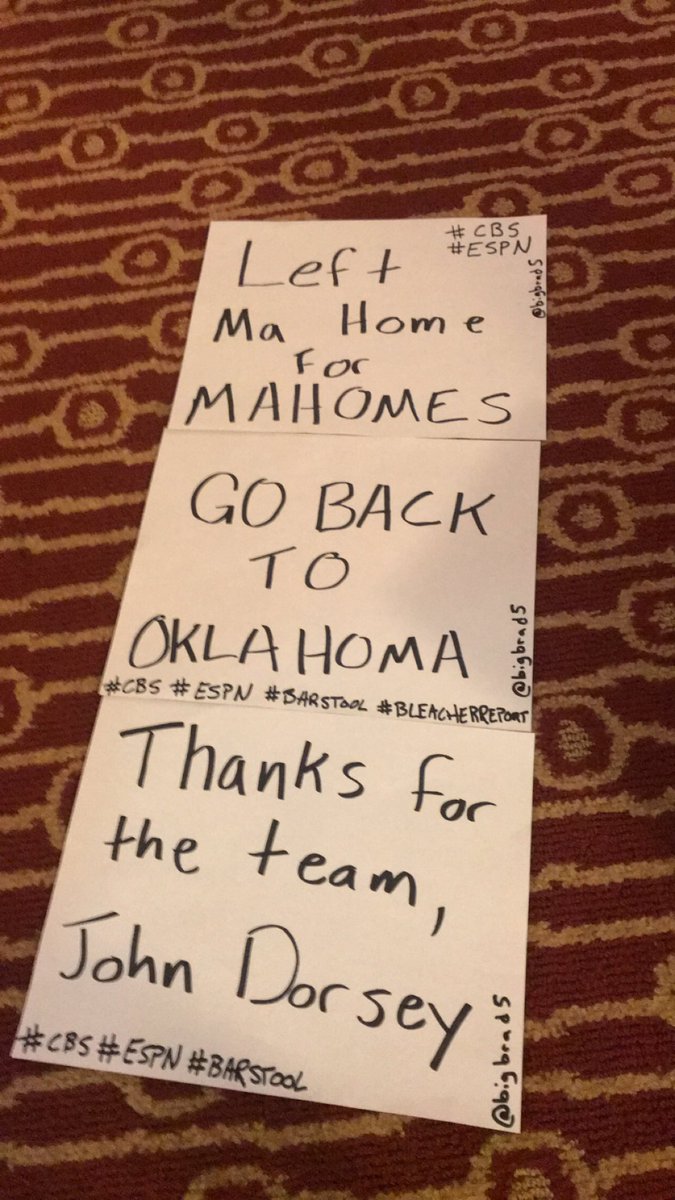 #CBS
#ESPN
@bigbrad5
Left
Ma Home
For
MAHOMES
GO BACK
TO
OKLAHOMA
@bigbrad5
#CBS #ESPN #BARSTOOL #BLEACHERREPORT
Thanks for
the team,
John Dorsey
@bigbrad5
#CBS #ESPN #BARSTOOL